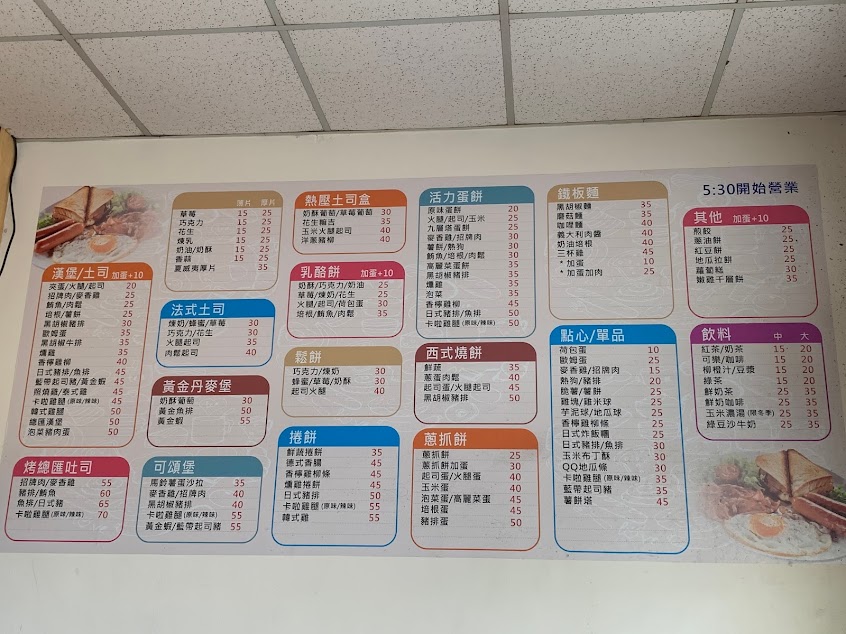 5:30開始營業
薄片 厚片
草莓 15 25
巧克力 15 25
花生 15 25
煉乳 15 25
奶油/奶酥 15 25
香蒜 15 25
夏威夷厚片 35
漢堡/土司 加蛋+10
夾蛋/火腿/起司 20
招牌肉/麥香雞 25
鮪魚/肉鬆 25
培根/薯餅 25
黑胡椒豬排 30
歐姆蛋 35
黑胡椒牛排 35
燻雞 35
香檸雞柳 40
日式豬排/魚排 45
藍帶起司豬/黃金蝦 45
照燒雞/泰式雞 45
卡啦雞腿(原味/辣味) 50
韓式雞腿 50
總匯漢堡 50
泡菜豬肉蛋 50
烤總匯吐司
招牌肉/麥香雞 55
豬排/鮪魚 60
魚排/日式豬 65
卡啦雞腿(原味/辣味) 70
法式土司
煉奶/蜂蜜/草莓 30
巧克力/花生 30
火腿起司 35
肉鬆起司 40
黃金丹麥堡
奶酥葡萄 30
黃金魚排 50
黃金蝦 55
可頌堡
馬鈴薯蛋沙拉 35
麥香雞/招牌肉 40
黑胡椒豬排 40
卡啦雞腿(原味/辣味) 55
黃金蝦/藍帶起司豬 55
熱壓土司盒
奶酥葡萄/草莓葡萄 30
花生麻吉 35
玉米火腿起司 40
洋蔥豬柳 40
乳酪餅 加蛋+10
奶酥/巧克力/奶油 25
草莓/煉奶/花生 25
火腿/起司/荷包蛋 30
培根/鮪魚/肉鬆 35
鬆餅
巧克力/煉奶 30
蜂蜜/草莓/奶酥 30
起司火腿 40
捲餅
鮮蔬捲餅 35
德式香腸 45
香檸雞柳條 45
燻雞捲餅 45
日式豬排 50
卡啦雞腿(原味/辣味) 55
韓式雞 55
活力蛋餅
原味蛋餅 20
火腿/起司/玉米 25
九層塔蛋餅 25
麥香雞/招牌肉 30
薯餅/熱狗 30
鮪魚/培根/肉鬆 30
高麗菜蛋餅 35
黑胡椒豬排 35
燻雞 35
泡菜 35
香檸雞柳 45
日式豬排/魚排 50
卡啦雞腿(原味/辣味) 50
西式燒餅
鮮蔬 35
蔥蛋肉鬆 40
起司蛋/火腿起司 45
黑胡椒豬排 50
蔥抓餅
蔥抓餅 25
蔥抓餅加蛋 30
起司蛋/火腿蛋 40
玉米蛋 40
泡菜蛋/高麗菜蛋 45
培根蛋 45
豬排蛋 50
鐵板麵
黑胡椒麵 35
蘑菇麵 35
咖哩麵 40
義大利肉醬 40
奶油培根 40
三杯雞 45
* 加蛋 10
* 加蛋加肉 25
點心/單品
荷包蛋 10
歐姆蛋 25
麥香雞/招牌肉 15
熱狗/豬排 20
脆薯/薯餅 25
雞塊/雞米球 25
芋泥球/地瓜球 25
香檸雞柳條 25
日式炸飯糰 25
日式豬排/魚排 30
玉米布丁酥 30
QQ地瓜條 30
卡啦雞腿(原味/辣味) 35
藍帶起司豬 35
薯餅塔 45
其他 加蛋+10
煎餃 25
蔥油餅 25
紅豆餅 25
地瓜拉餅 25
蘿蔔糕 30
嫩雞千層餅 30
飲料 中 大
紅茶/奶茶 15 20
可樂/咖啡 15 20
柳橙汁/豆漿 15 20
綠茶 15 20
鮮奶茶 25 35
鮮奶咖啡 25 35
玉米濃湯(限冬季) 25 35
綠豆沙牛奶 25 35